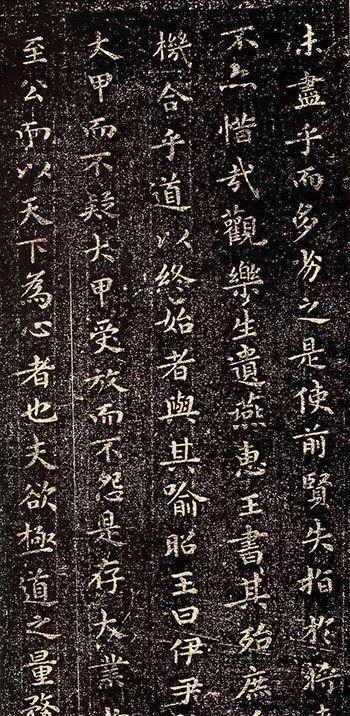 未盡乎而多劣之是使前賢失指於將
不亦惜哉觀樂生遺燕惠王書其殆庶
機合乎道以終始者與其喻昭王曰伊尹
大甲而不疑大甲受放而不怨是存大業
至公而以天下為心者也夫欲極道之量務